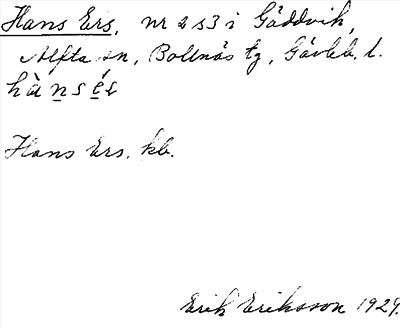 Hans Ers, nr 2 s3 i Gäddvik,
Alfta sn, Bollnäs tg, Gävleb. l.
hàn̲sé̲s
Hans Ers. kb.
Erik Eriksson 1929.